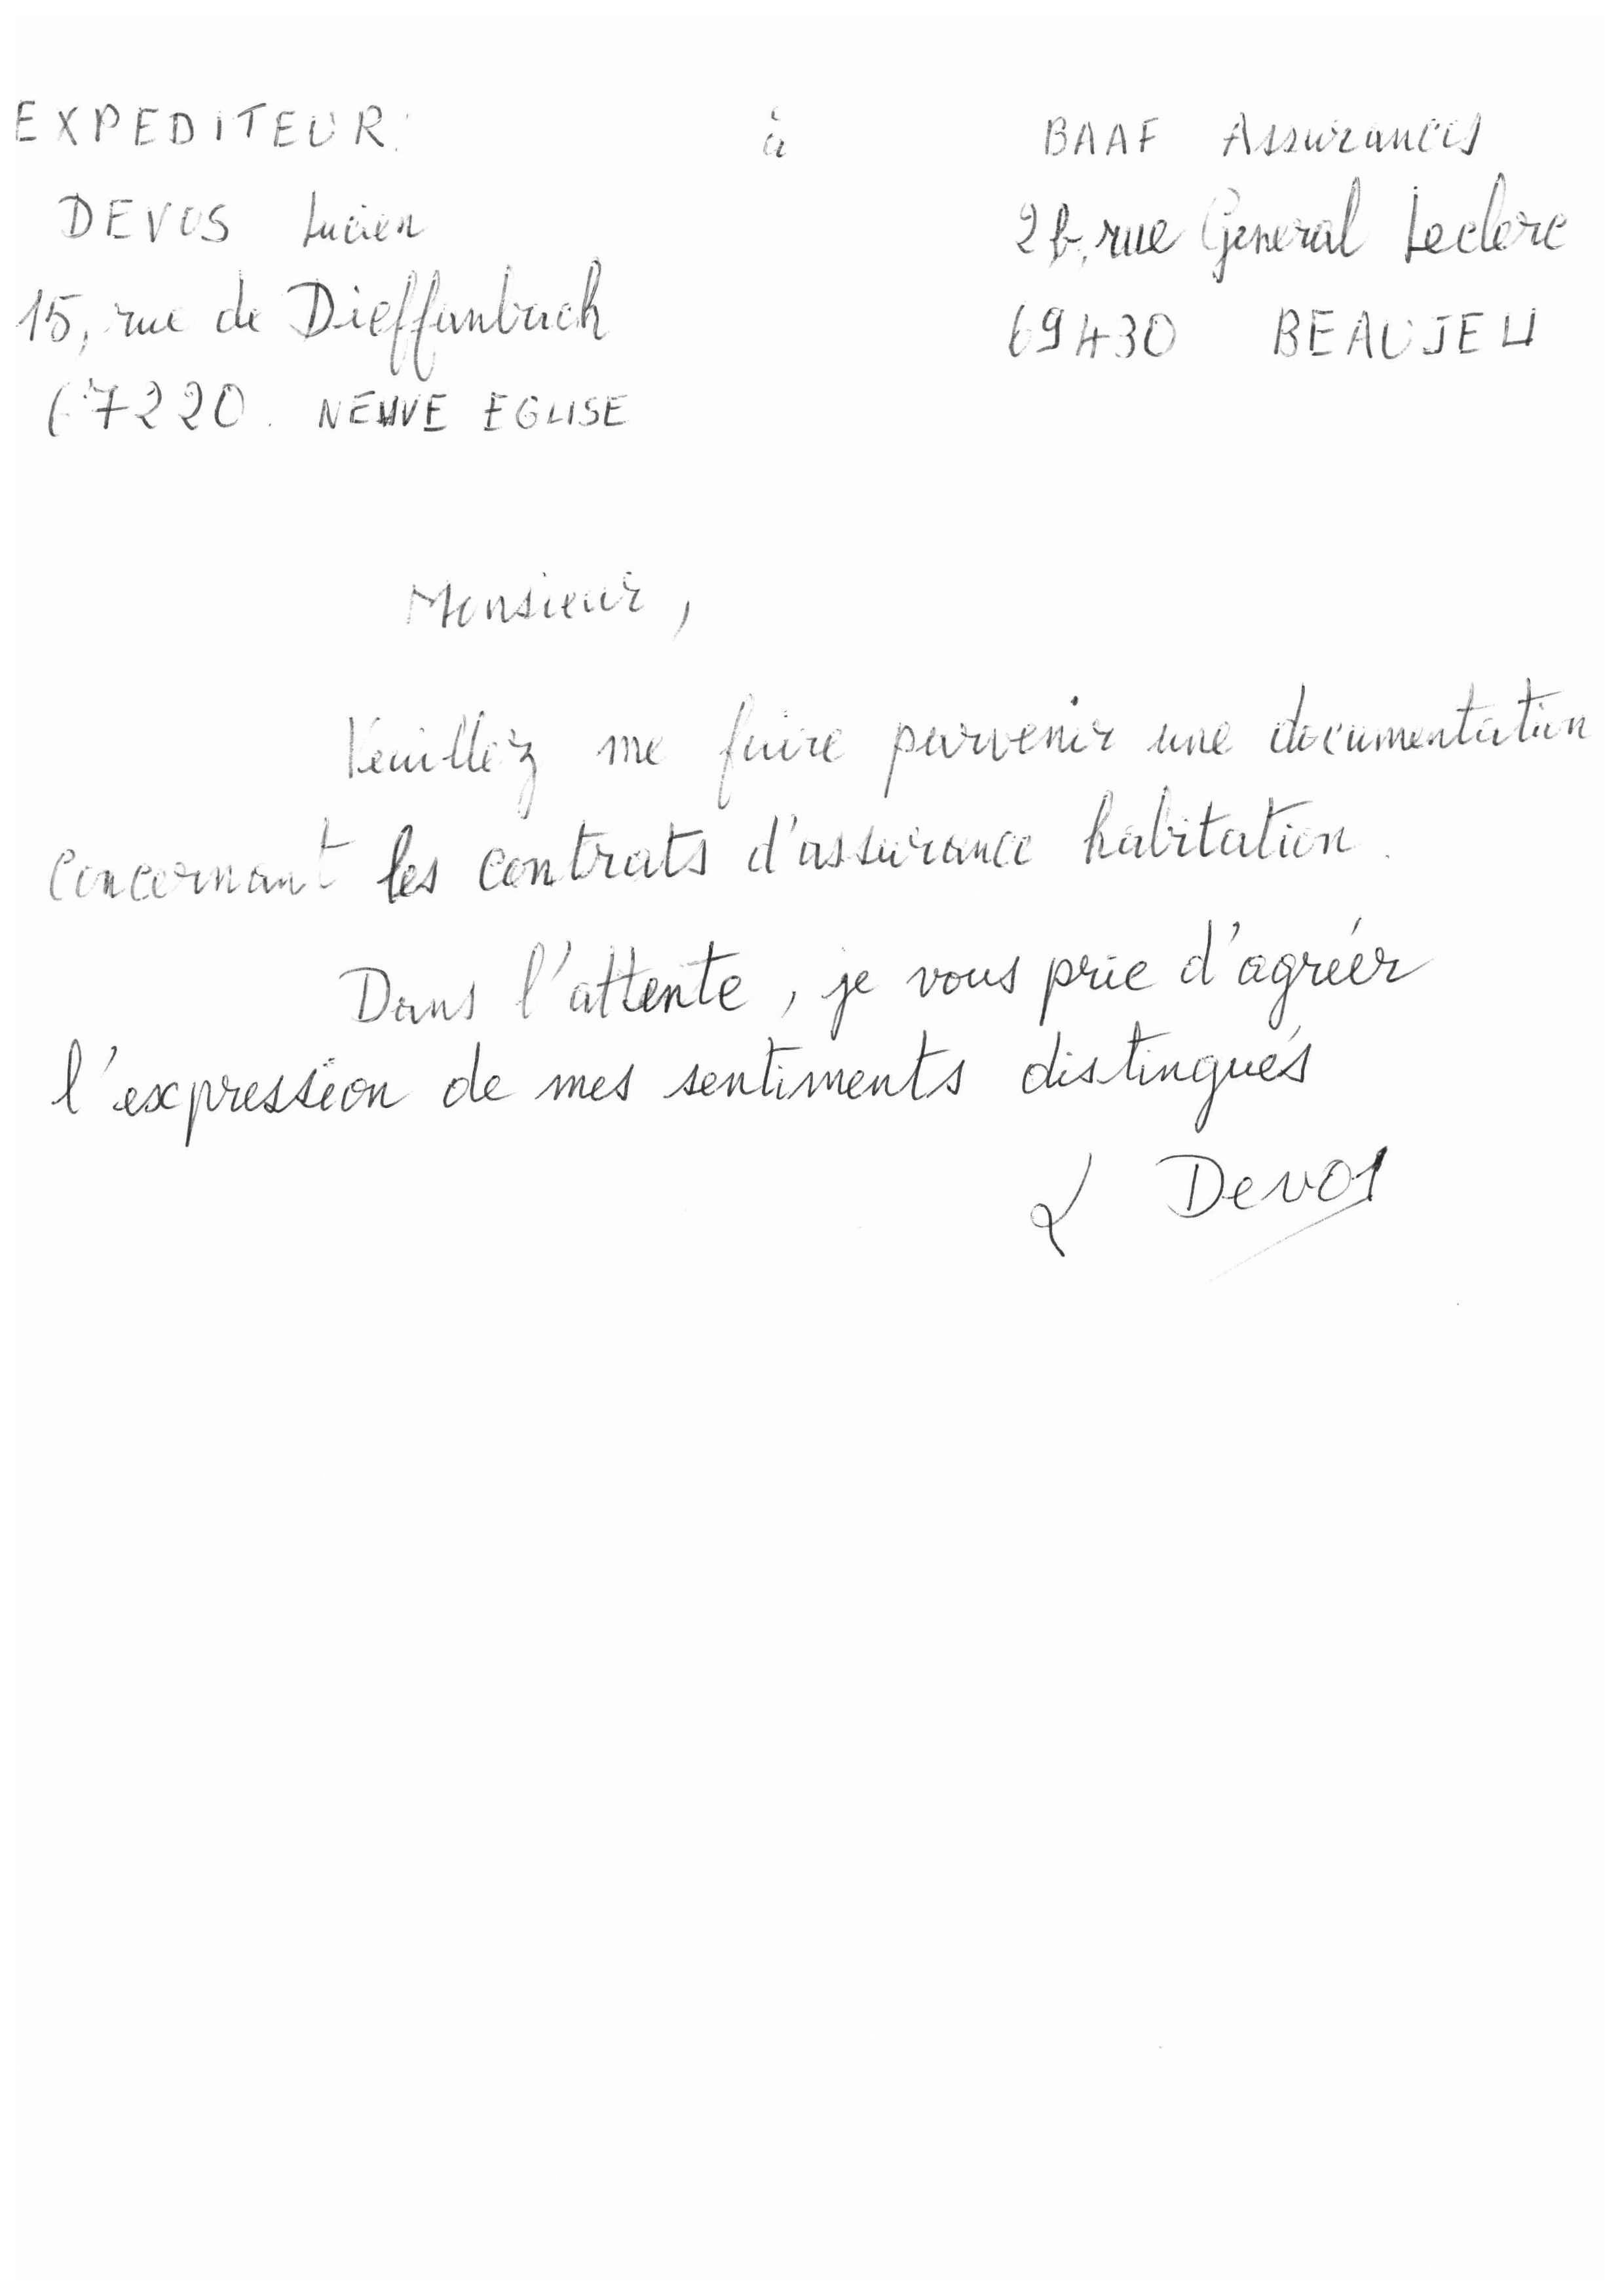 EXPEDITEUR:
DEVOS Lucien
15, rue de Dieffenbach
67220. NEUVE EGLISE
à
BAAF Assurances
2b, rue General Leclerc
69430 BEAUJEU
Monsieur,
Veuillez me faire parvenir une documentation
concernant les contrats d'assurance habitation.
Dans l'attente, je vous prie d'agréer
l'expression de mes sentiments distingués
L Devos